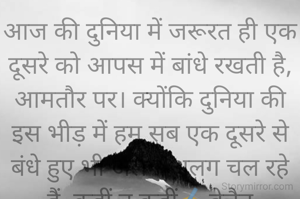 आज की दुनिया में जरूरत ही एक
दूसरे को आपस में बांधे रखती है,
आमतौर पर। क्योंकि दुनिया की
इस भीड़ में हम सब एक दूसरे से
बंधे हुए भी चल रहे
Storymirror.com